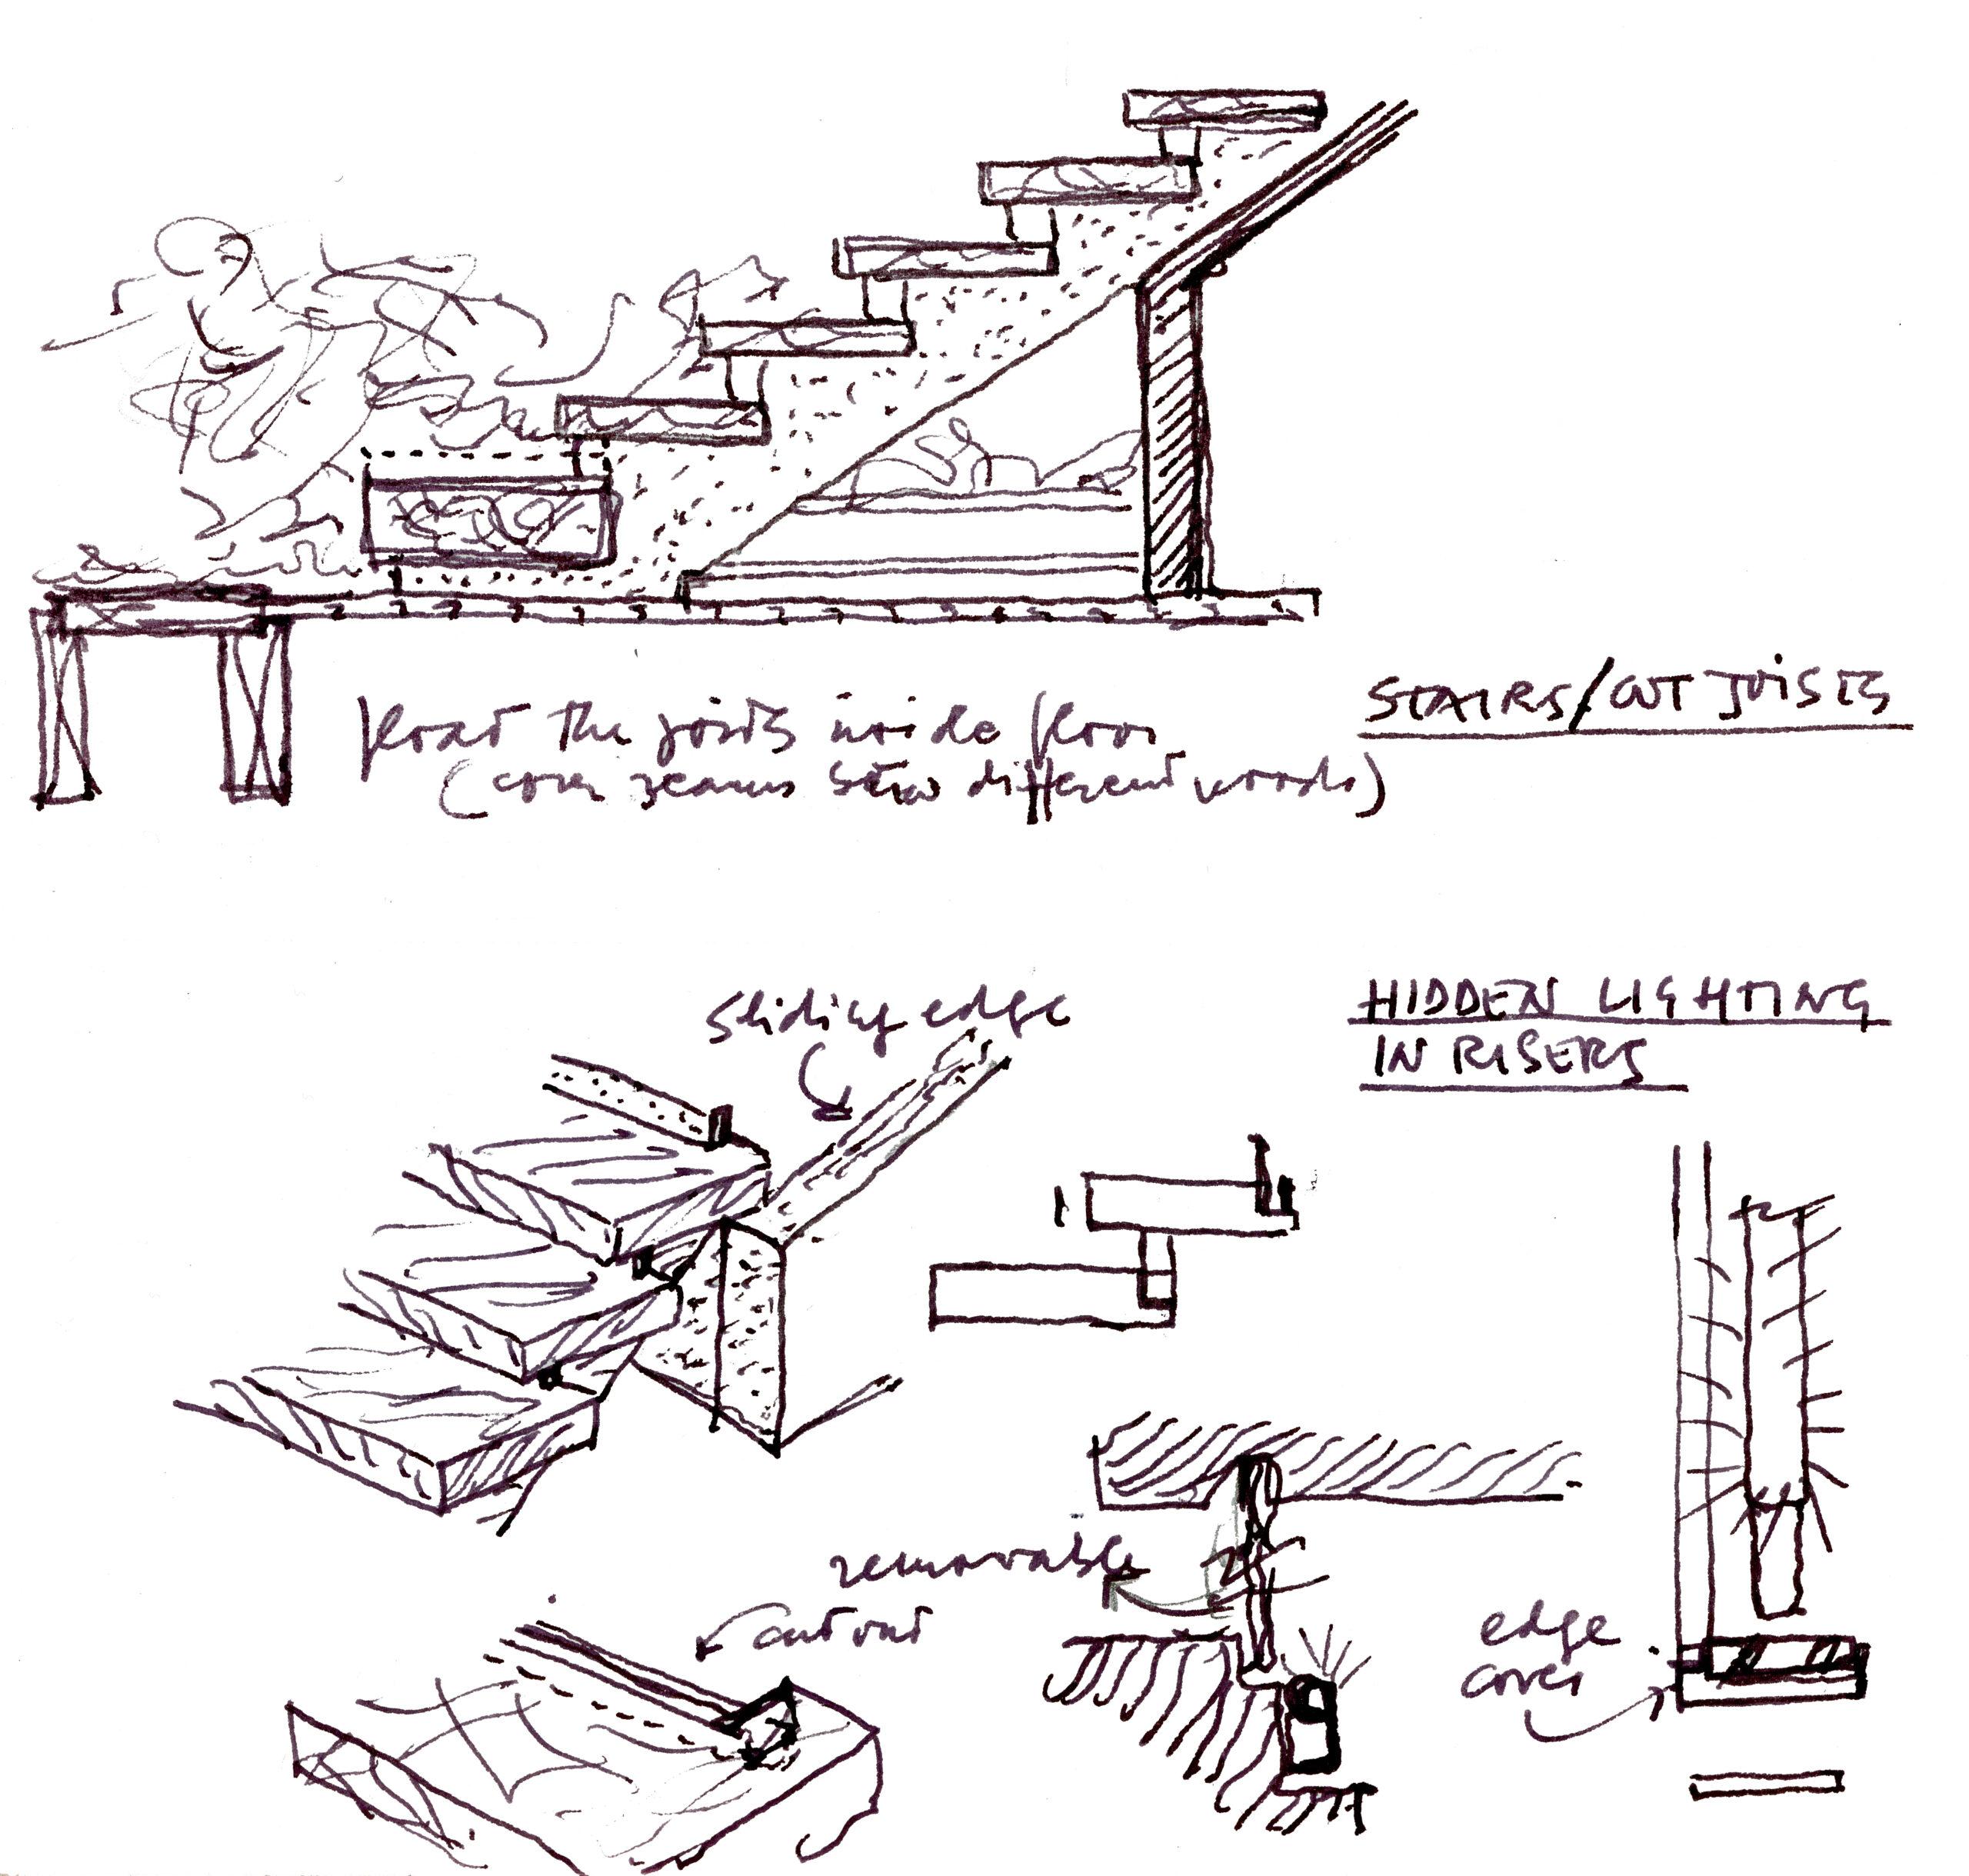 STAIRS/CUT JOISTS
float the joists inside floor
(cover seams btw different woods)
HIDDEN LIGHTING
IN RISERS
sliding edge
removable
cut out
edge
cover